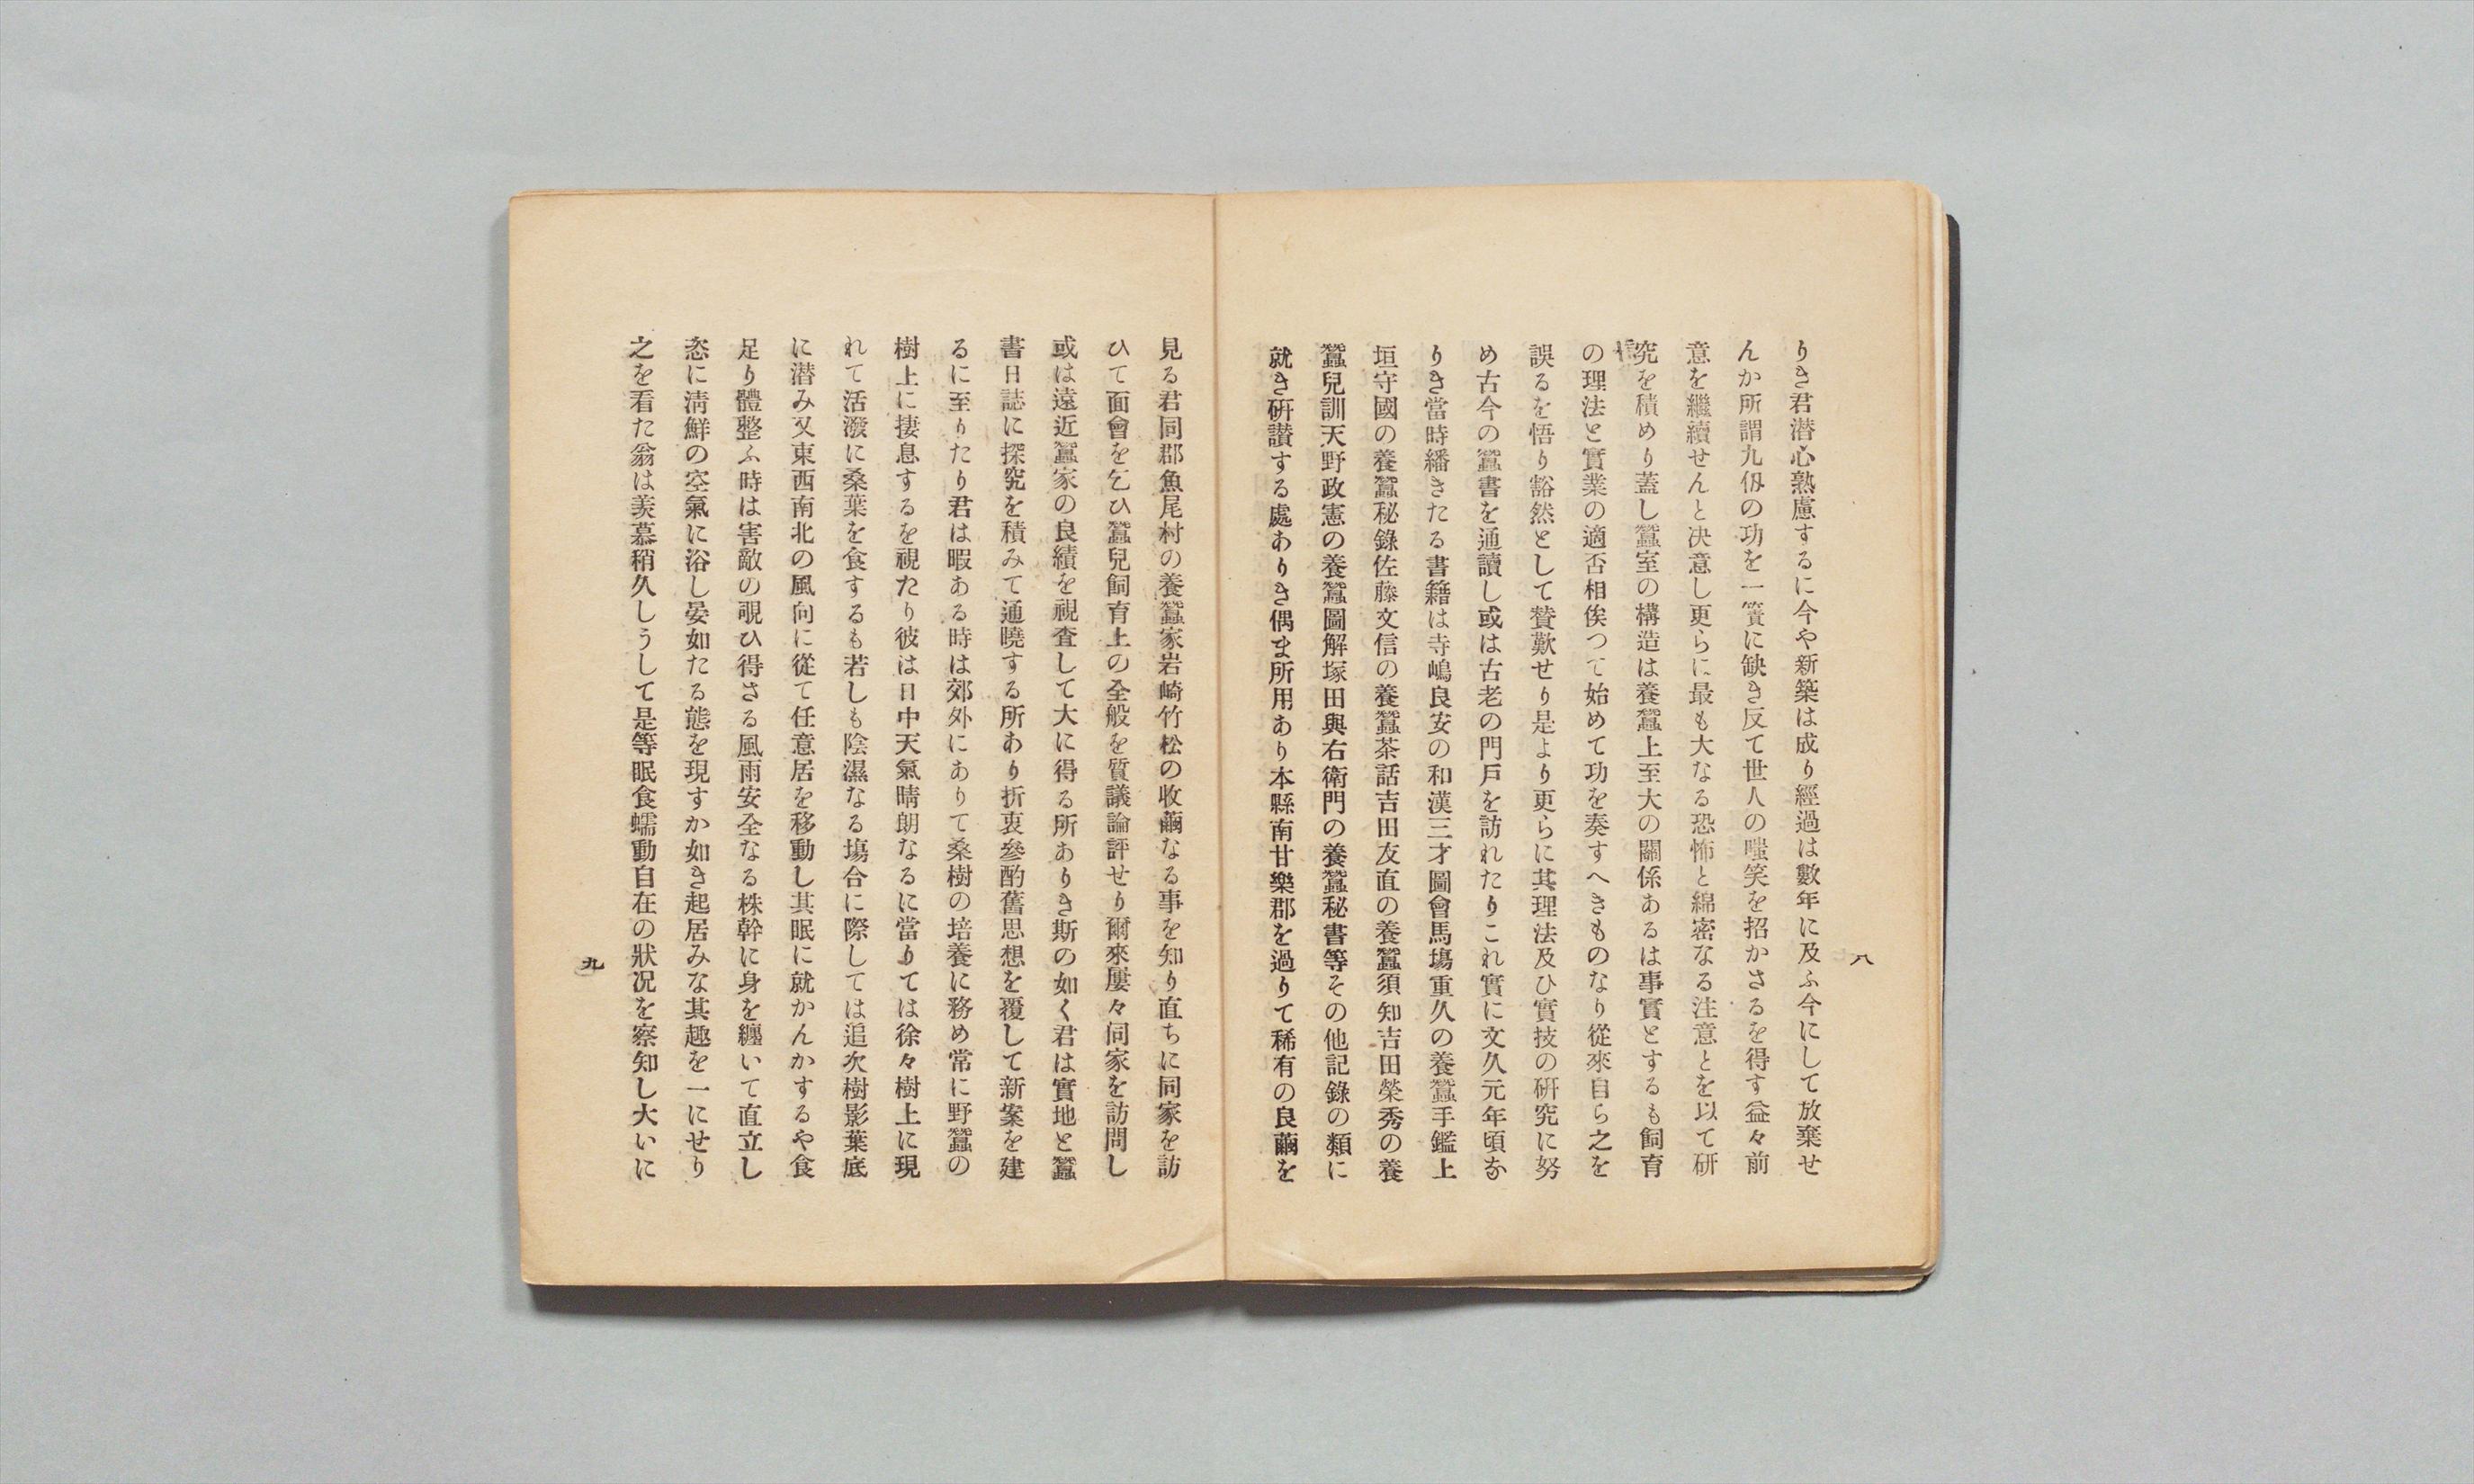 八
りき君潜心熟慮するに今や新築は成り經過は數年に及ふ今にして放棄せ
んか所謂九仭の功を一簣に缺き反て世人の嗤笑を招かさるを得す益々前
意を繼續せんと决意し更らに最も大なる恐怖と綿密なる注意とを以て研
究を積めり蓋し蠶室の構造は養蠶上至大の關係あるは事實とするも飼育
の理法と實業の適否相俟つて始めて功を奏すへきものなり從來自ら之を
誤るを悟り豁然として賛歎せり是より更らに其理法及ひ實技の研究に努
め古今の蠶書を通讀し或は古老の門戸を訪れたりこれ實に文久元年頃な
りき當時繙きたる書籍は寺嶋良安の和漢三才圖會馬塲重久の養蠶手鑑上
垣守國の養蠶秘錄佐藤文信の養蠶茶話吉田友直の養蠶須知吉田榮秀の養
蠶兒訓天野政憲の養蠶圖解塚田與右衛門の養蠶秘書等その他記錄の類に
就き研讃する處ありき偶ま所用あり本縣南甘樂郡を過りて稀有の良繭を
見る君同郡魚尾村の養蠶家岩崎竹松の收繭なる事を知り直ちに同家を訪
ひて面會を乞ひ蠶兒飼育上の全般を質議論評せり爾來屢々同家を訪問し
或は遠近蠶家の良績を視査して大に得る所ありき斯の如く君は實地と蠶
書日誌に探究を積みて通曉する所あり折衷參酌舊思想を覆して新案を建
るに至りたり君は暇ある時は郊外にありて桑樹の培養に務め常に野蠶の
樹上に捿息するを視たり彼は日中天氣晴朗なるに當りては徐々樹上に現
れて活潑に桑葉を食するも若しも陰濕なる塲合に際しては追次樹影葉底
に潜み又東西南北の風向に從て任意居を移動し其眠に就かんかするや食
足り體整ふ時は害敵の覗ひ得さる風雨安全なる株幹に身を纏いて直立し
恣に淸鮮の空氣に浴し晏如たる態を現すか如き起居みな其趣を一にせり
之を看た翁は羨慕稍久しうして是等眠食蠕動自在の狀况を察知し大いに
九